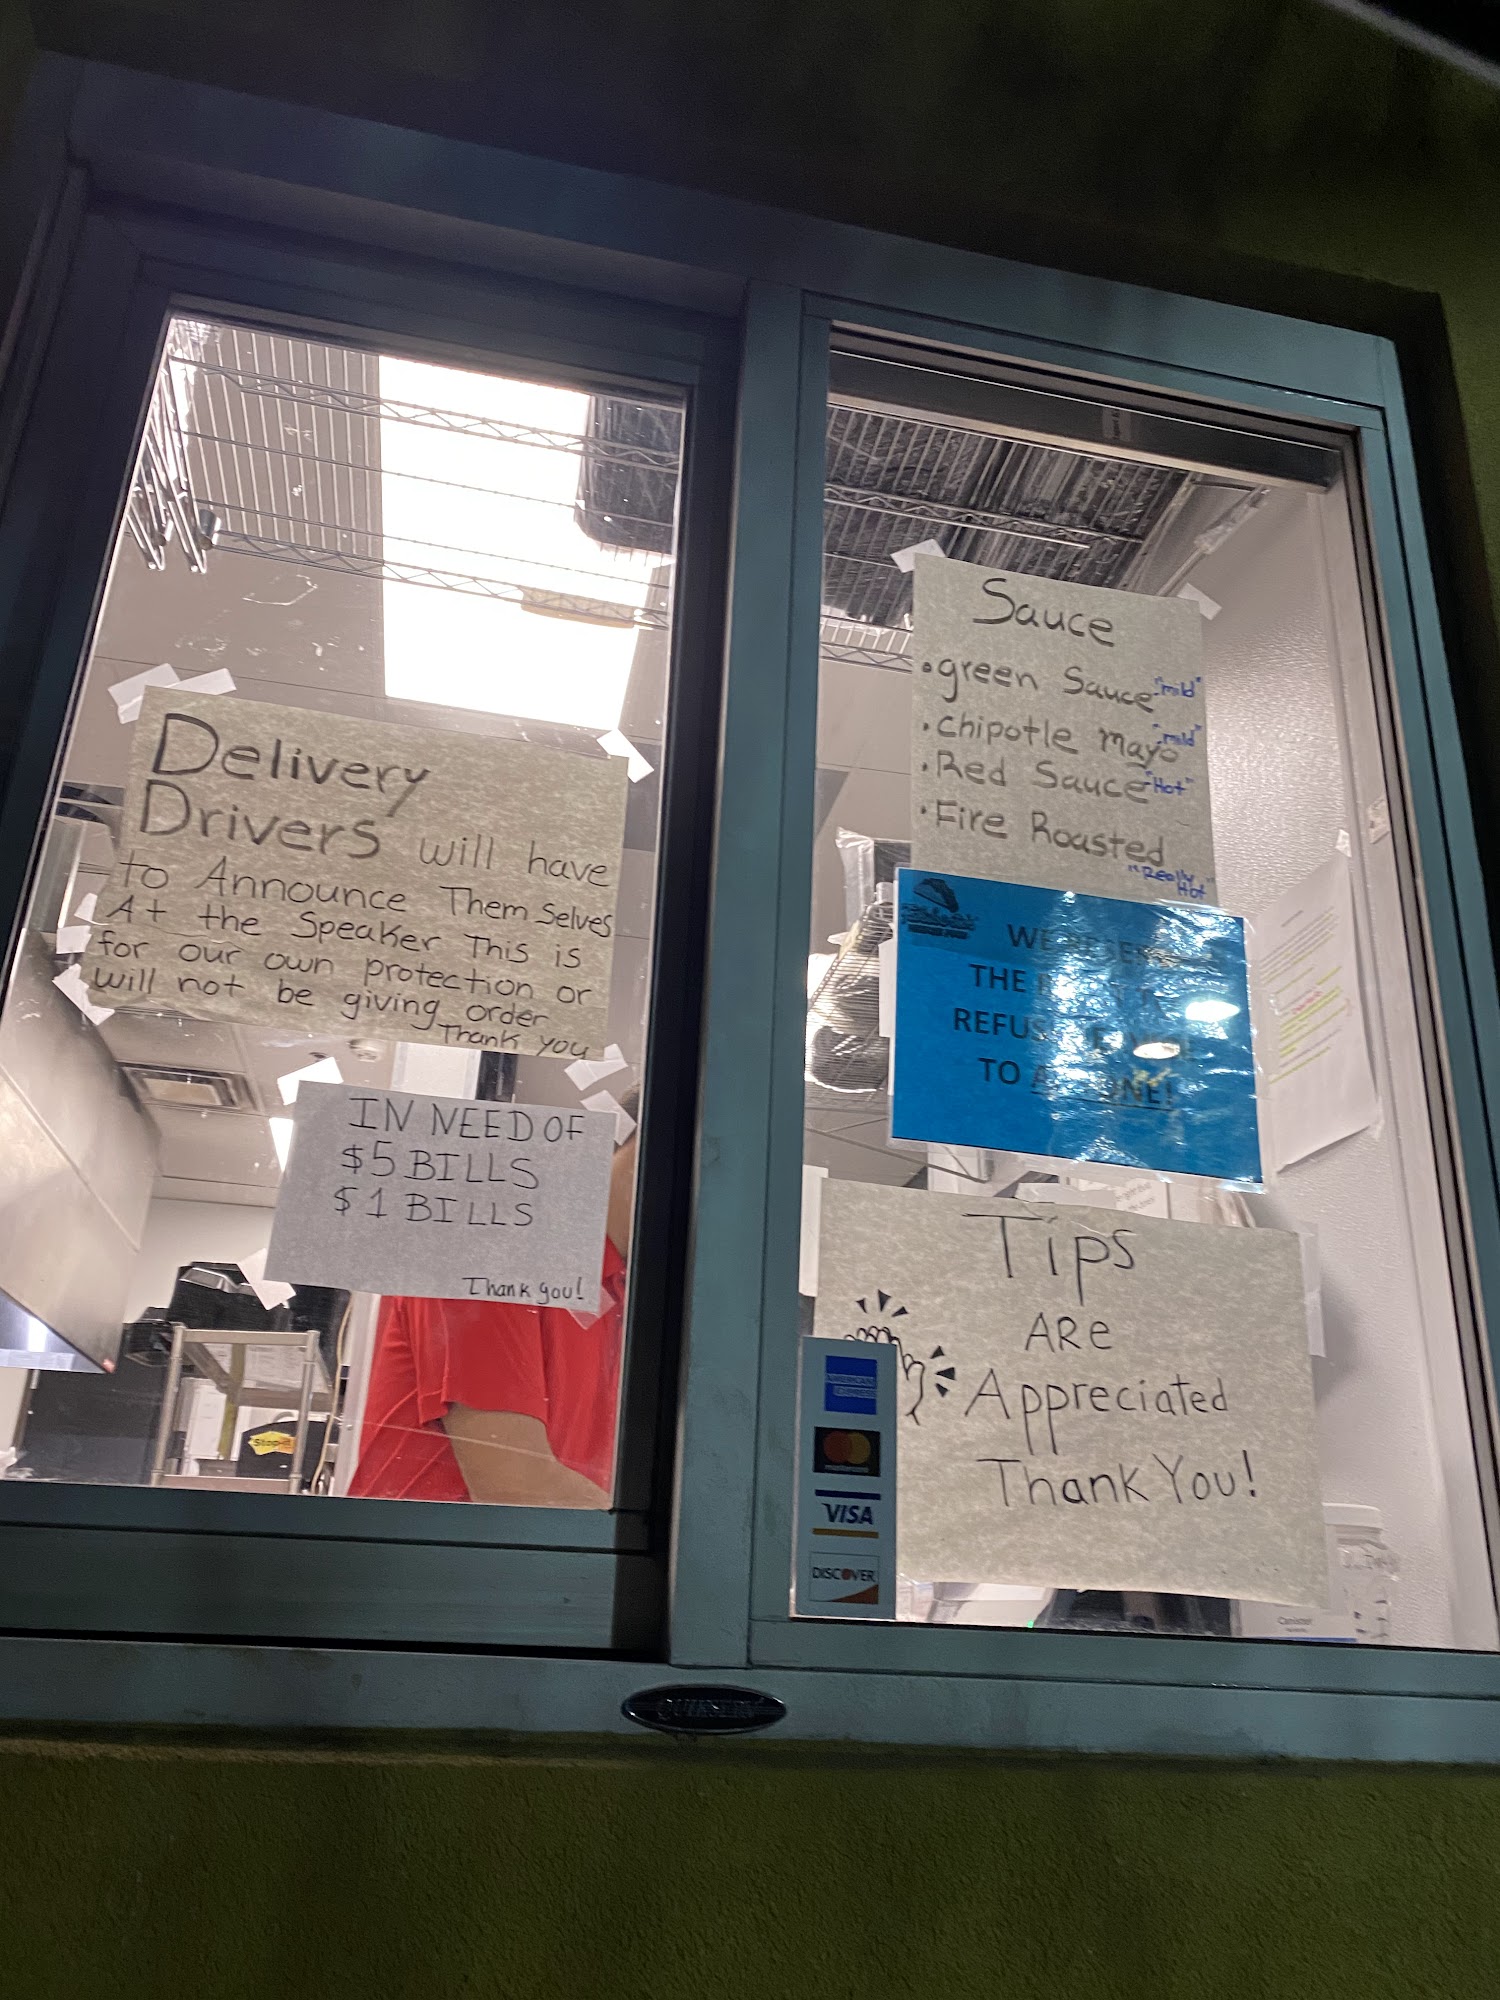 Delivery
Drivers will have
to Announce Them Selves
At the Speaker This is
for our own protection or
will not be giving order
Thank you
IN NEED OF
$5 BILLS
$1 BILLS
Thank you!
Sauce
• green Sauce "mild"
• Chipotle Mayo "mild"
• Red Sauce "Hot"
• Fire Roasted
"Really
Hot"
WE RESERVE
THE RIGHT TO
REFUSE
TO ANYONE!
Tips
ARe
Appreciated
Thank You!
AMERICAN
EXPRESS
mastercard
VISA
DISCOVER
Stop-it
QUIKSERV
Canister